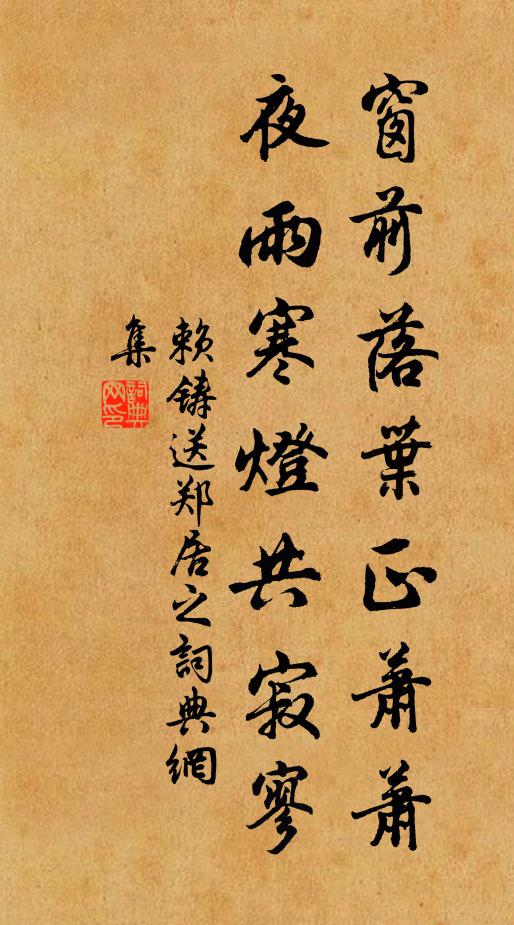 窗前落葉正蕭蕭
夜雨寒燈共寂寥
赖鑄送郑居之詞典網
集
詞典網印